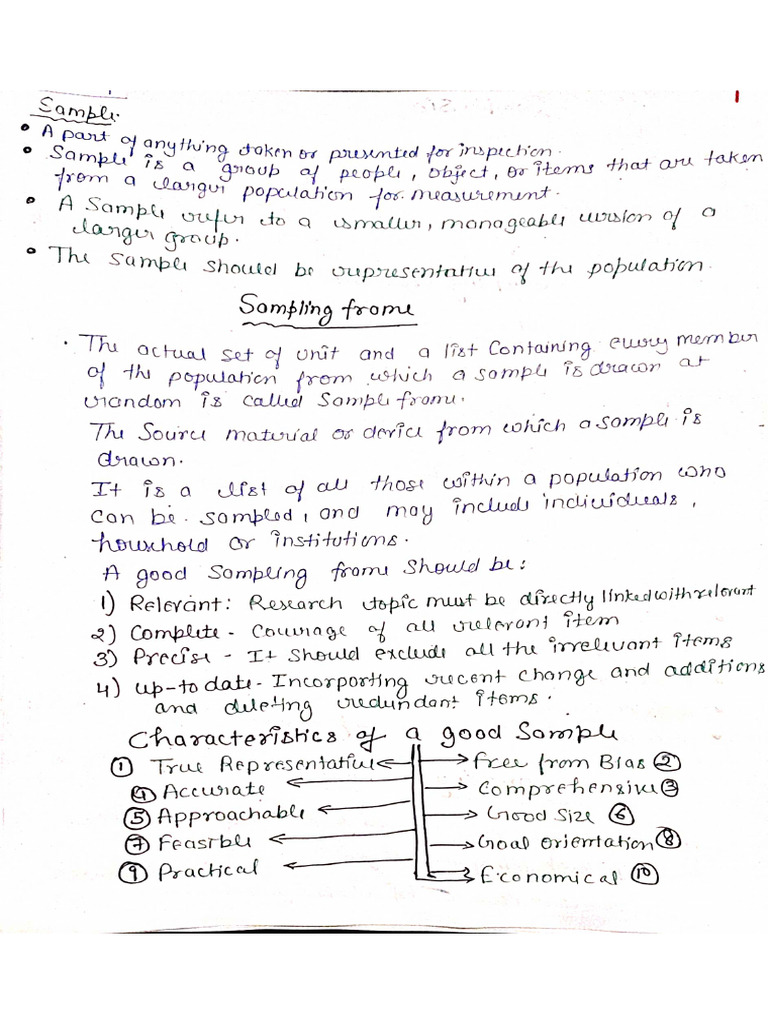 1
Sample.
• A part of anything taken or presented for inspection.
• Sample is a group of people, object, or items that are taken
from a larger population for measurement.
• A Sample refer to a smaller, manageable version of a
larger group.
• The Sample should be representative of the population.
Sampling frame
• The actual set of unit and a list Containing every member
of the population from which a sample is drawn at
random is called Sample frame.
The Source material or device from which a sample is
drawn.
It is a list of all those within a population who
can be sampled, and may include individuals,
household or institutions.
A good Sampling frame Should be:
1) Relevant: Research topic must be directly linked with relevant
2) Complete - Courage of all relevant item
3) Precise - It Should exclude all the irrelevant items
4) up-to date - Incorporting recent change and additions
and deleting redundant items.
Characteristics of a good Sample
① True Representative Free from Bias ②
④ Accurate Comprehensive ③
⑤ Approachable Good Size ⑥
⑦ Feasible Goal orientation ⑧
⑨ Practical Economical ⑩